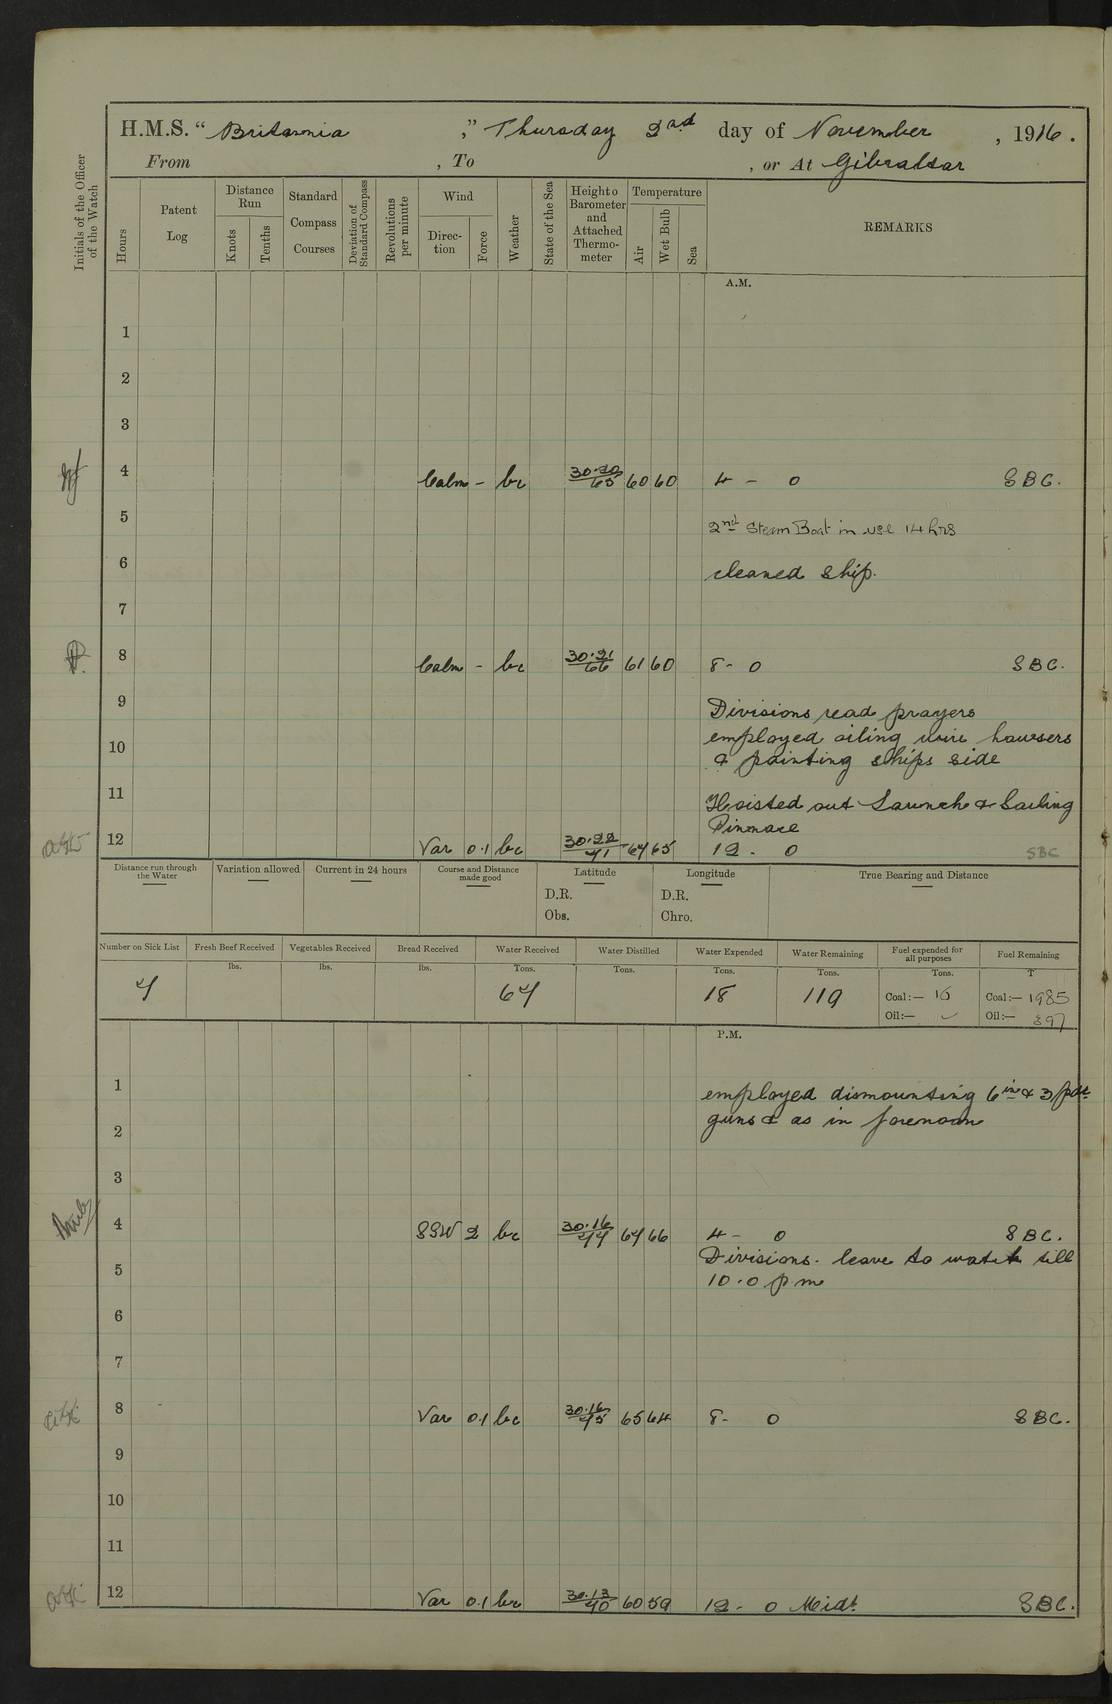 H.M.S. "Britannia," Thursday 2nd day of November, 1916.
From , To , or At Gibraltar
Initials of the Officer of the Watch
Hours
Patent Log
Distance Run
Knots
Tenths
Standard Compass Courses
Deviation of Standard Compass
Revolutions per minute
Wind
Direction
Force
Weather
State of the Sea
Height o Barometer and Attached Thermometer
Temperature
Air
Wet Bulb
Sea
REMARKS
A.M.
1
2
3
4 Calm - bc 30.20/65 60 60 4 - 0 SBC.
5 2nd Steam Boat in use 14 hrs
6 cleaned ship.
7
8 Calm - bc 30.21/66 61 60 8 - 0 SBC.
9 Divisions read prayers
10 employed oiling wire hawsers
& painting ships side
11 Hoisted out Launch & Sailing
Pinnace
12 Var 0.1 bc 30.22/71 67 65 12 - 0 SBC
Distance run through the Water
Variation allowed
Current in 24 hours
Course and Distance made good
Latitude
D.R.
Obs.
Longitude
D.R.
Chro.
True Bearing and Distance
Number on Sick List
Fresh Beef Received
Vegetables Received
Bread Received
Water Received
Water Distilled
Water Expended
Water Remaining
Fuel expended for all purposes
Fuel Remaining
lbs. lbs. lbs. Tons. Tons. Tons. Tons. Tons. T
7 67 18 119 Coal:— 16 Coal:— 1985
Oil:— Oil:— 397
P.M.
1 employed dismounting 6in & 3 pdr
2 guns & as in forenoon
3
4 SSW 2 bc 30.16/74 67 66 4 - 0 SBC.
Divisions. leave to watch till
5 10.0 pm
6
7
8 Var 0.1 bc 30.16/75 65 64 8 - 0 SBC.
9
10
11
12 Var 0.1 bc 30.13/70 60 59 12 - 0 Midt SBC.